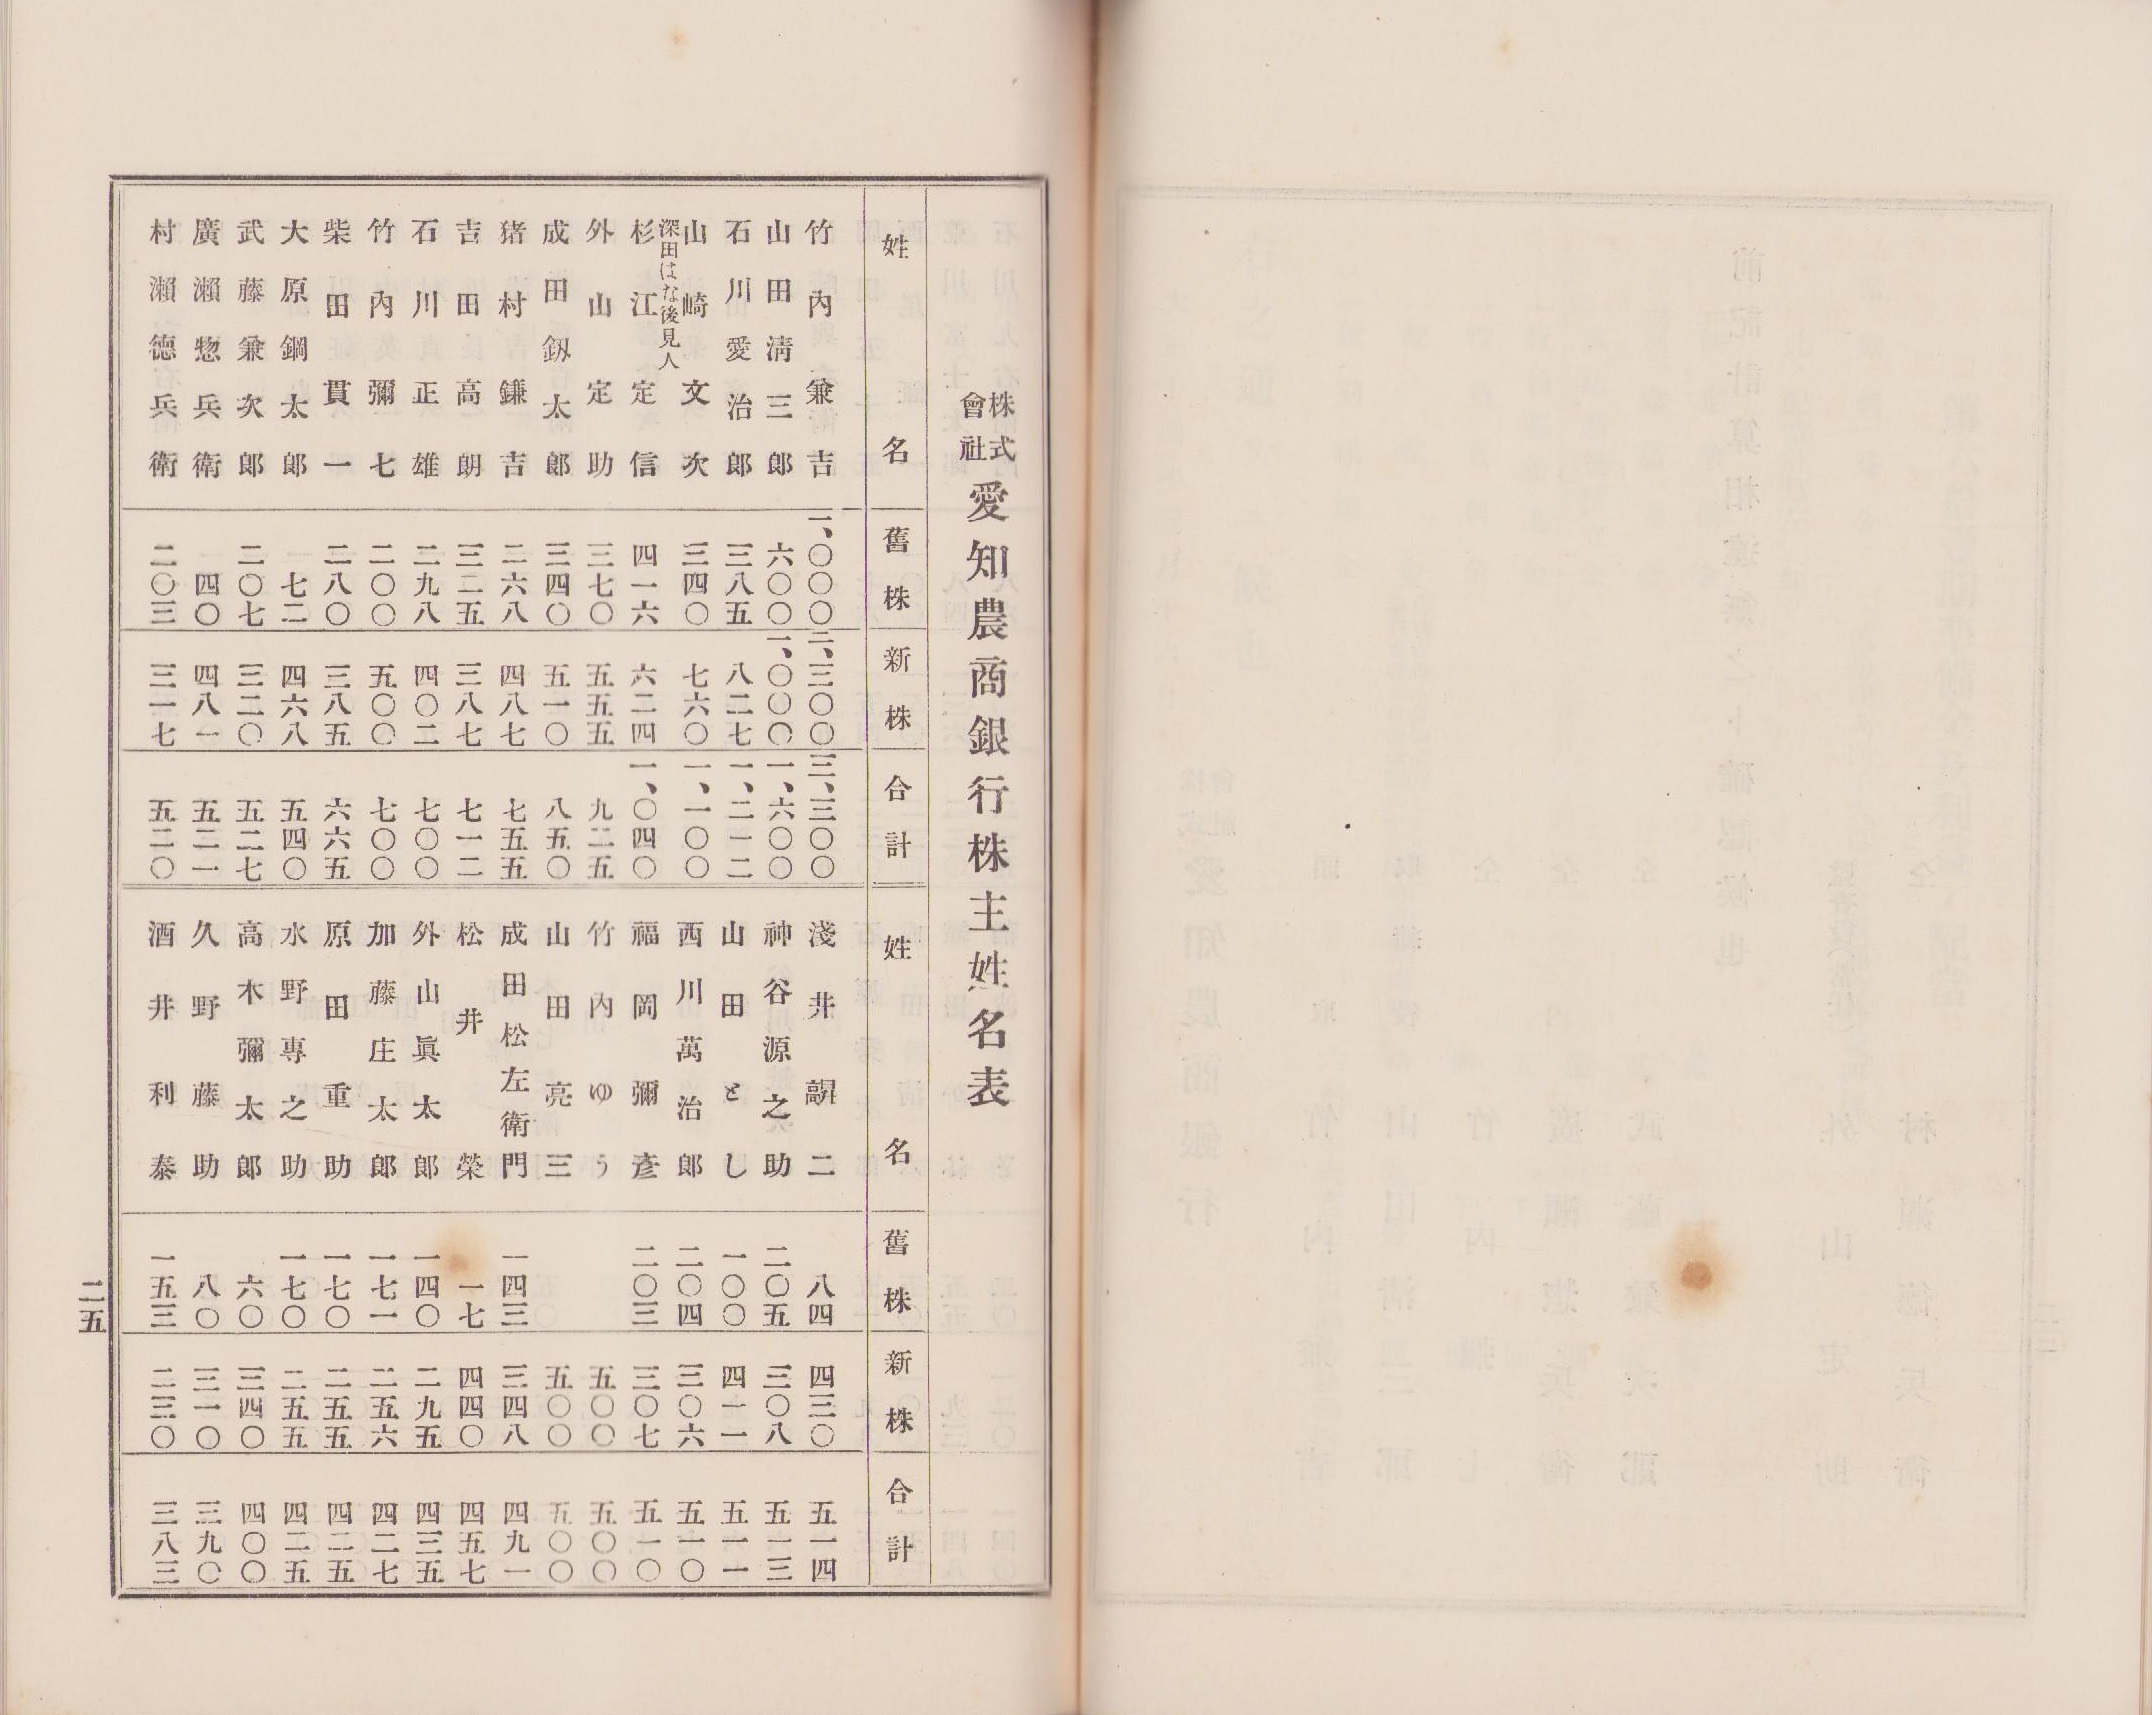 株式會社 愛知農商銀行株主姓名表
姓名 舊株 新株 合計 姓名 舊株 新株 合計
竹內兼吉 一、〇〇〇 二、三〇〇 三、三〇〇 淺井 二 八四 四三〇 五一四
山田淸三郎 六〇〇 一、〇〇〇 一、六〇〇 神谷源之助 二〇五 三〇八 五一三
石川愛治郎 三八五 八二七 一、二一二 山田とし 一〇〇 四一一 五一一
山崎文次 三四〇 七六〇 一、一〇〇 西川萬治郎 二〇四 三〇六 五一〇
深田はな後見人
杉江定信 四一六 六二四 一、〇四〇 福岡彌彥 二〇三 三〇七 五一〇
外山定助 三七〇 五五五 九二五 竹內ゆう 五〇〇 五〇〇
成田釼太郎 三四〇 五一〇 八五〇 山田亮三 五〇〇 五〇〇
猪村鎌吉 二六八 四八七 七五五 成田松左衛門 一四三 三四八 四九一
吉田高朗 三二五 三八七 七一二 松井榮 一七 四四〇 四五七
石川正雄 二九八 四〇二 七〇〇 外山眞太郎 一四〇 二九五 四三五
竹內彌七 二〇〇 五〇〇 七〇〇 加藤庄太郎 一七一 二五六 四二七
柴田貫一 二八〇 三八五 六六五 原田重助 一七〇 二五五 四二五
大原鋼太郎 七二 四六八 五四〇 水野專之助 一七〇 二五五 四二五
武藤兼次郎 二〇七 三二〇 五二七 高木彌太郎 六〇 三四〇 四〇〇
廣瀨惣兵衛 四〇 四八一 五二一 久野藤助 八〇 三一〇 三九〇
村瀨德兵衛 二〇三 三一七 五二〇 酒井利泰 一五三 二三〇 三八三
二五